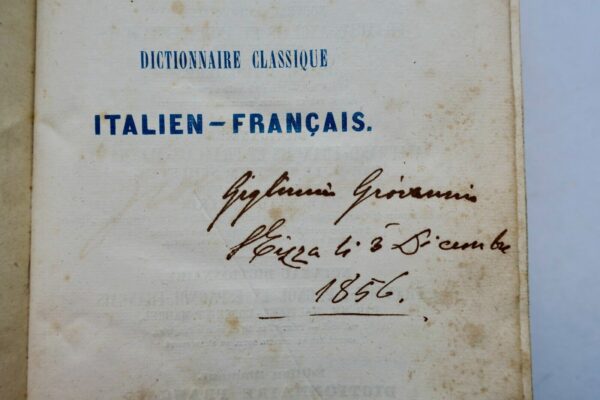 DICTIONNAIRE CLASSIQUE
ITALIEN-FRANÇAIS.
Giovanni
Nizza li 3 Dicembre
1856.